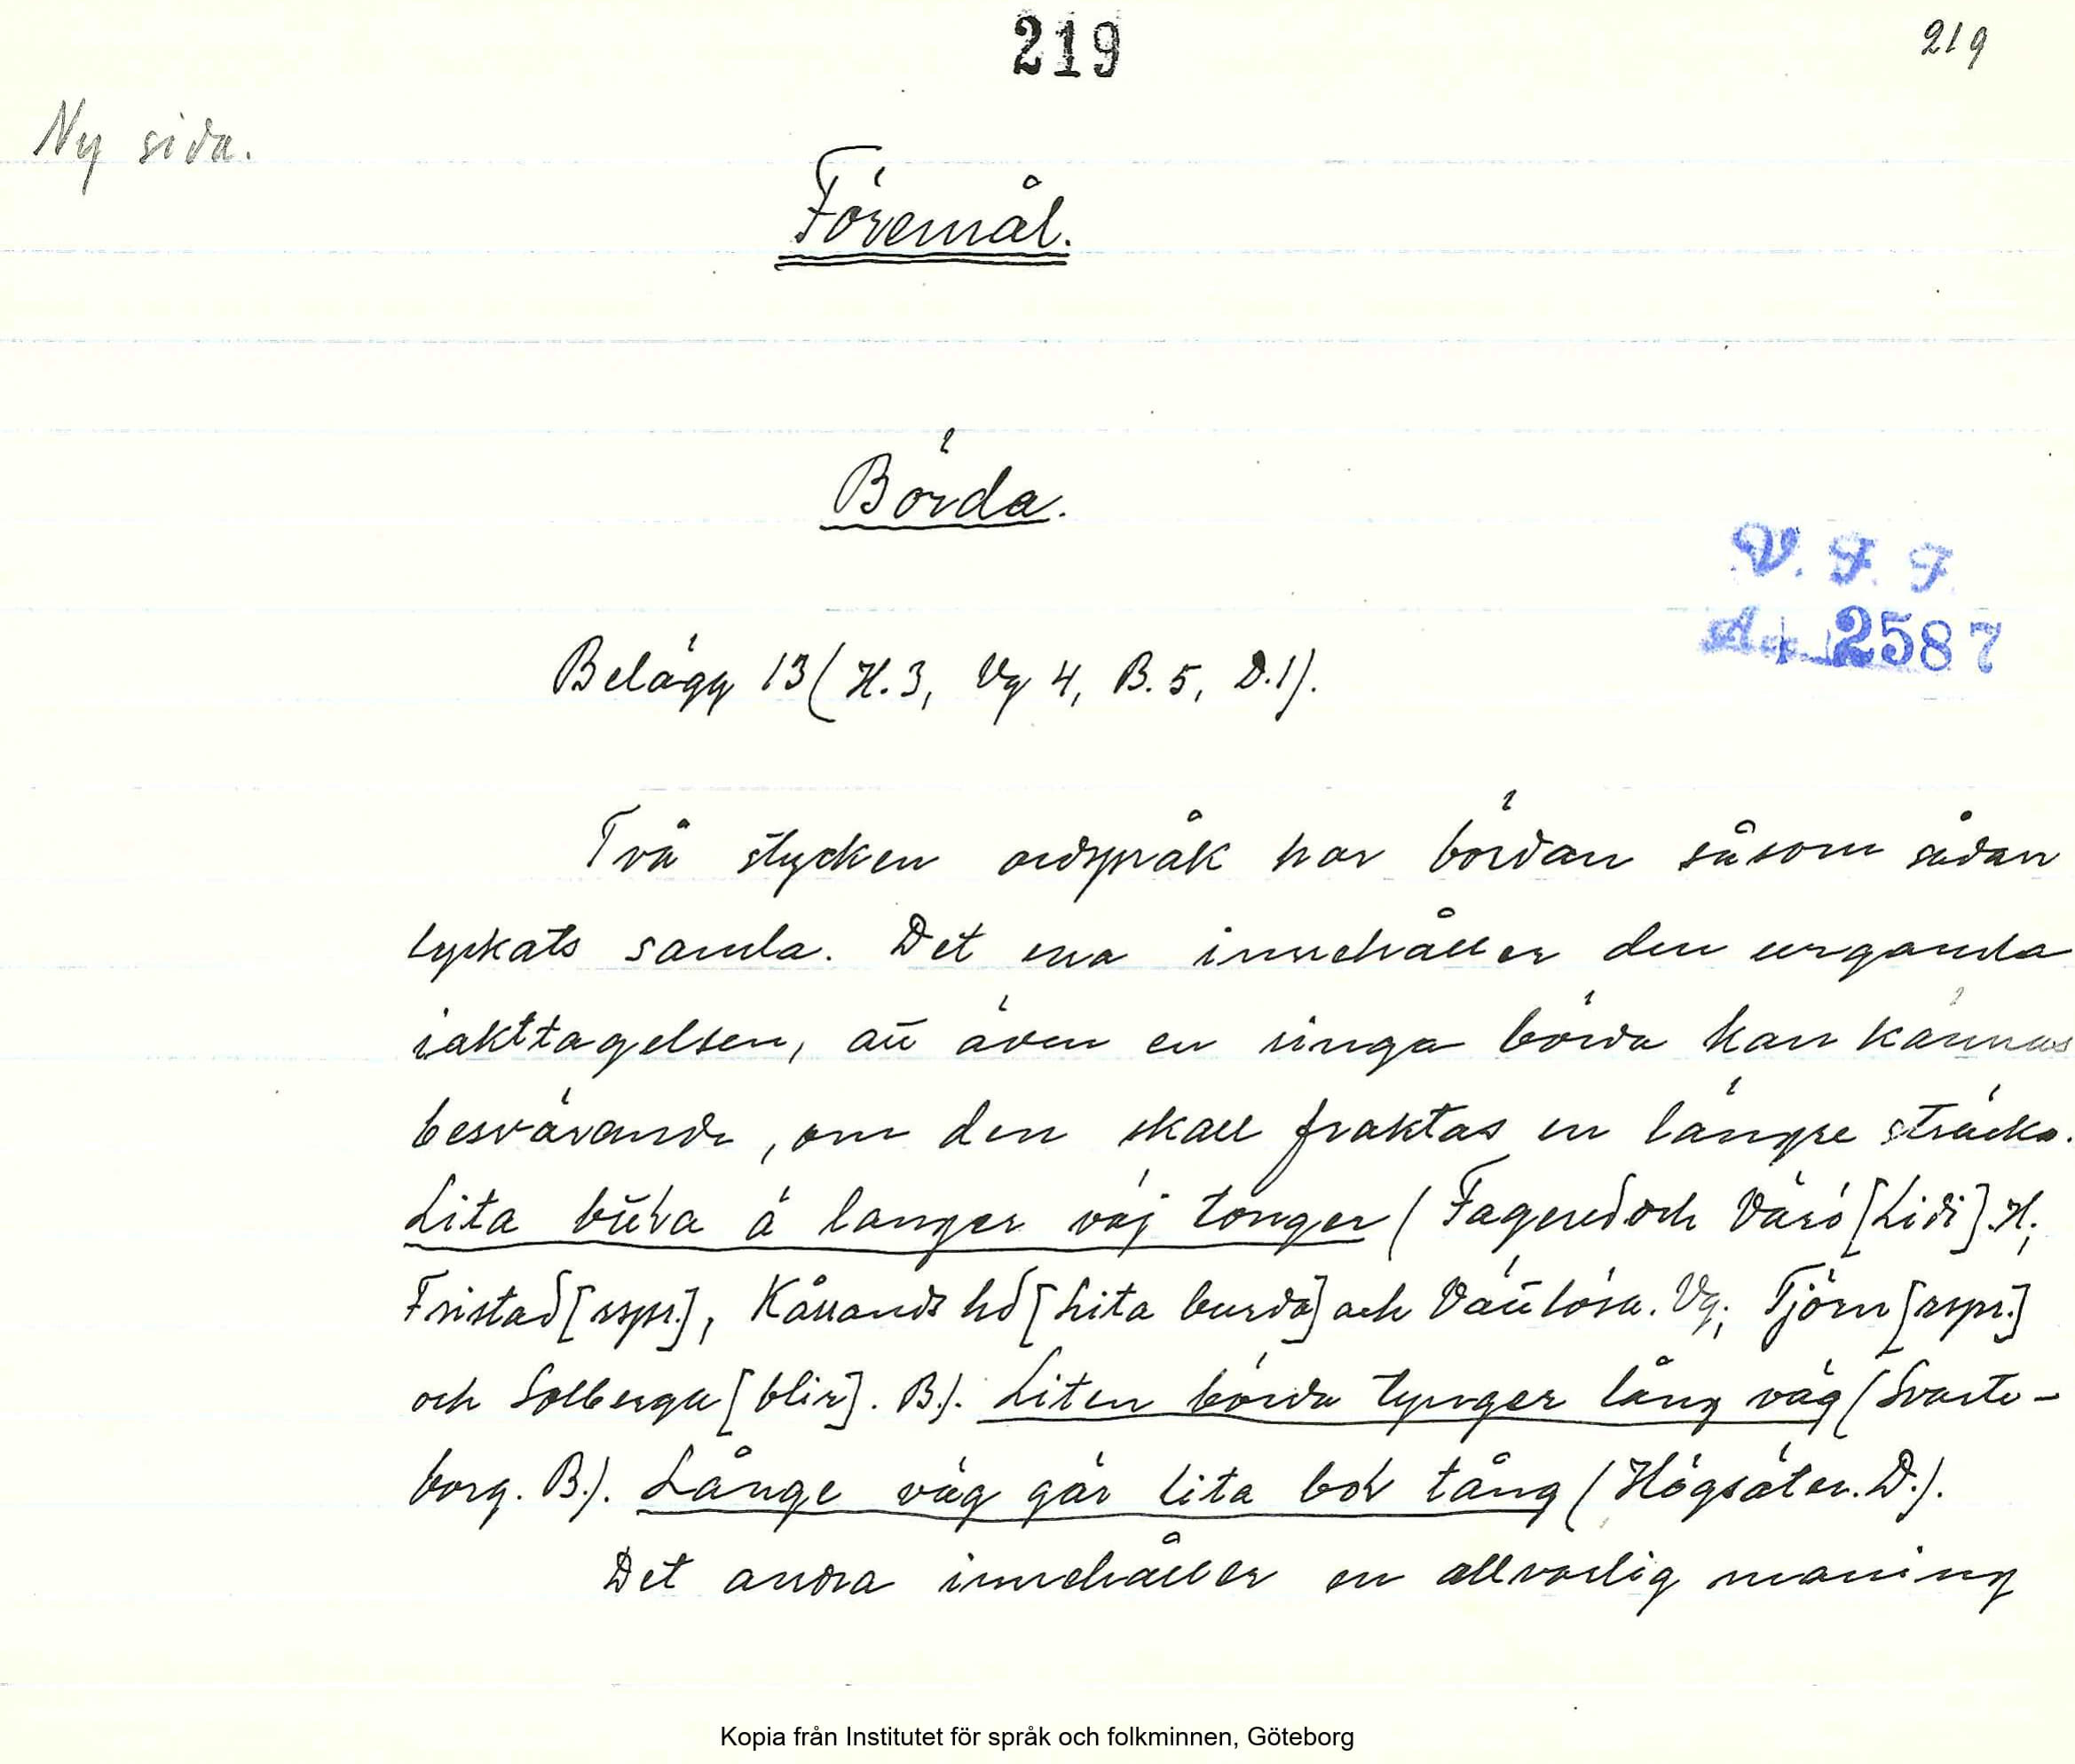 219
219
Ny sida.
Föremål.
Börda.
V. F. F.
2587
Belägg 13 (H. 3, Vg 4, B. 5, D. 1).
Två stycken ordspråk har bördan såsom sådan
lyckats samla. Det ena innehåller den urgamla
iakttagelsen, att även en ringa börda kan kännas
besvärande, om den skall fraktas en längre sträcka.
Lita à langer väj tönger (Fagered och Värö [Lidi]. H;
Fristad [rspr.], Kållands hd [Lita burda] och Vättlösa. Vg; Tjörn [rspr.]
och Solberga [blir]. B.). Liten börda tynger lång väg (Svarte-
borg. B.). Långe väg gär lita tång (Högsäter. D.).
Det andra innehåller en allvarlig maning
Kopia från Institutet för språk och folkminnen, Göteborg